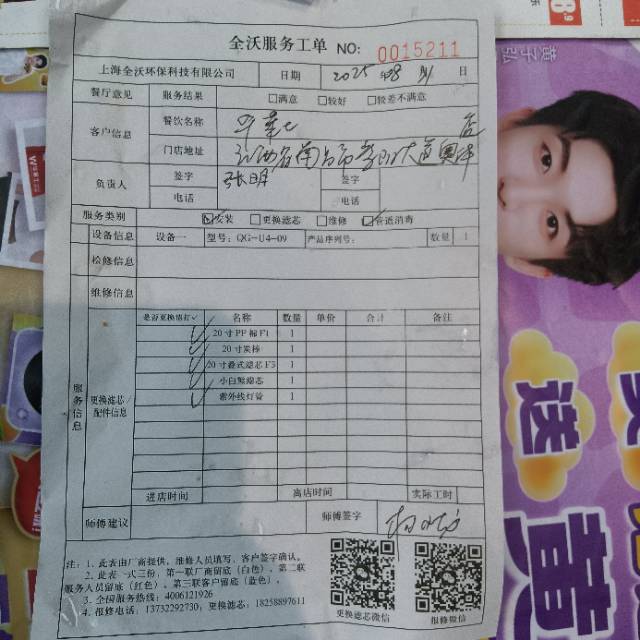 全沃服务工单 NO: 0015211
上海全沃环保科技有限公司 日期 2025年08 日
餐厅意见 服务结果 □满意 □较好 □较差不满意
客户信息 餐饮名称 店
门店地址 江西省南昌市 大道
负责人 签字 张明 签字
电话 电话
服务类别 安装 □更换滤芯 □维修 管道消毒
设备信息 设备一 型号: QG-U4-09 产品序列号: 数量 1
检修信息
维修信息
服务信息 更换滤芯/配件信息
是否更换请打✓ 名称 数量 单价 合计 备注
✓ 20寸PP棉F1 1
✓ 20寸炭棒 1
✓ 20寸叠式滤芯F3 1
✓ 小白熊滤芯 1
✓ 紫外线灯管 1
进店时间 离店时间 实际工时
师傅建议 师傅签字
注: 1、此表由厂商提供, 维修人员填写, 客户签字确认。
2、此表一式三份, 第一联厂商留底 (白色), 第二联
服务人员留底 (红色), 第三联客户留底 (蓝色)。
3、全国服务热线: 4006121926
4、报修电话: 13732292730; 更换滤芯: 18258897611
更换滤芯微信 报修微信
黄子弘
送
黄